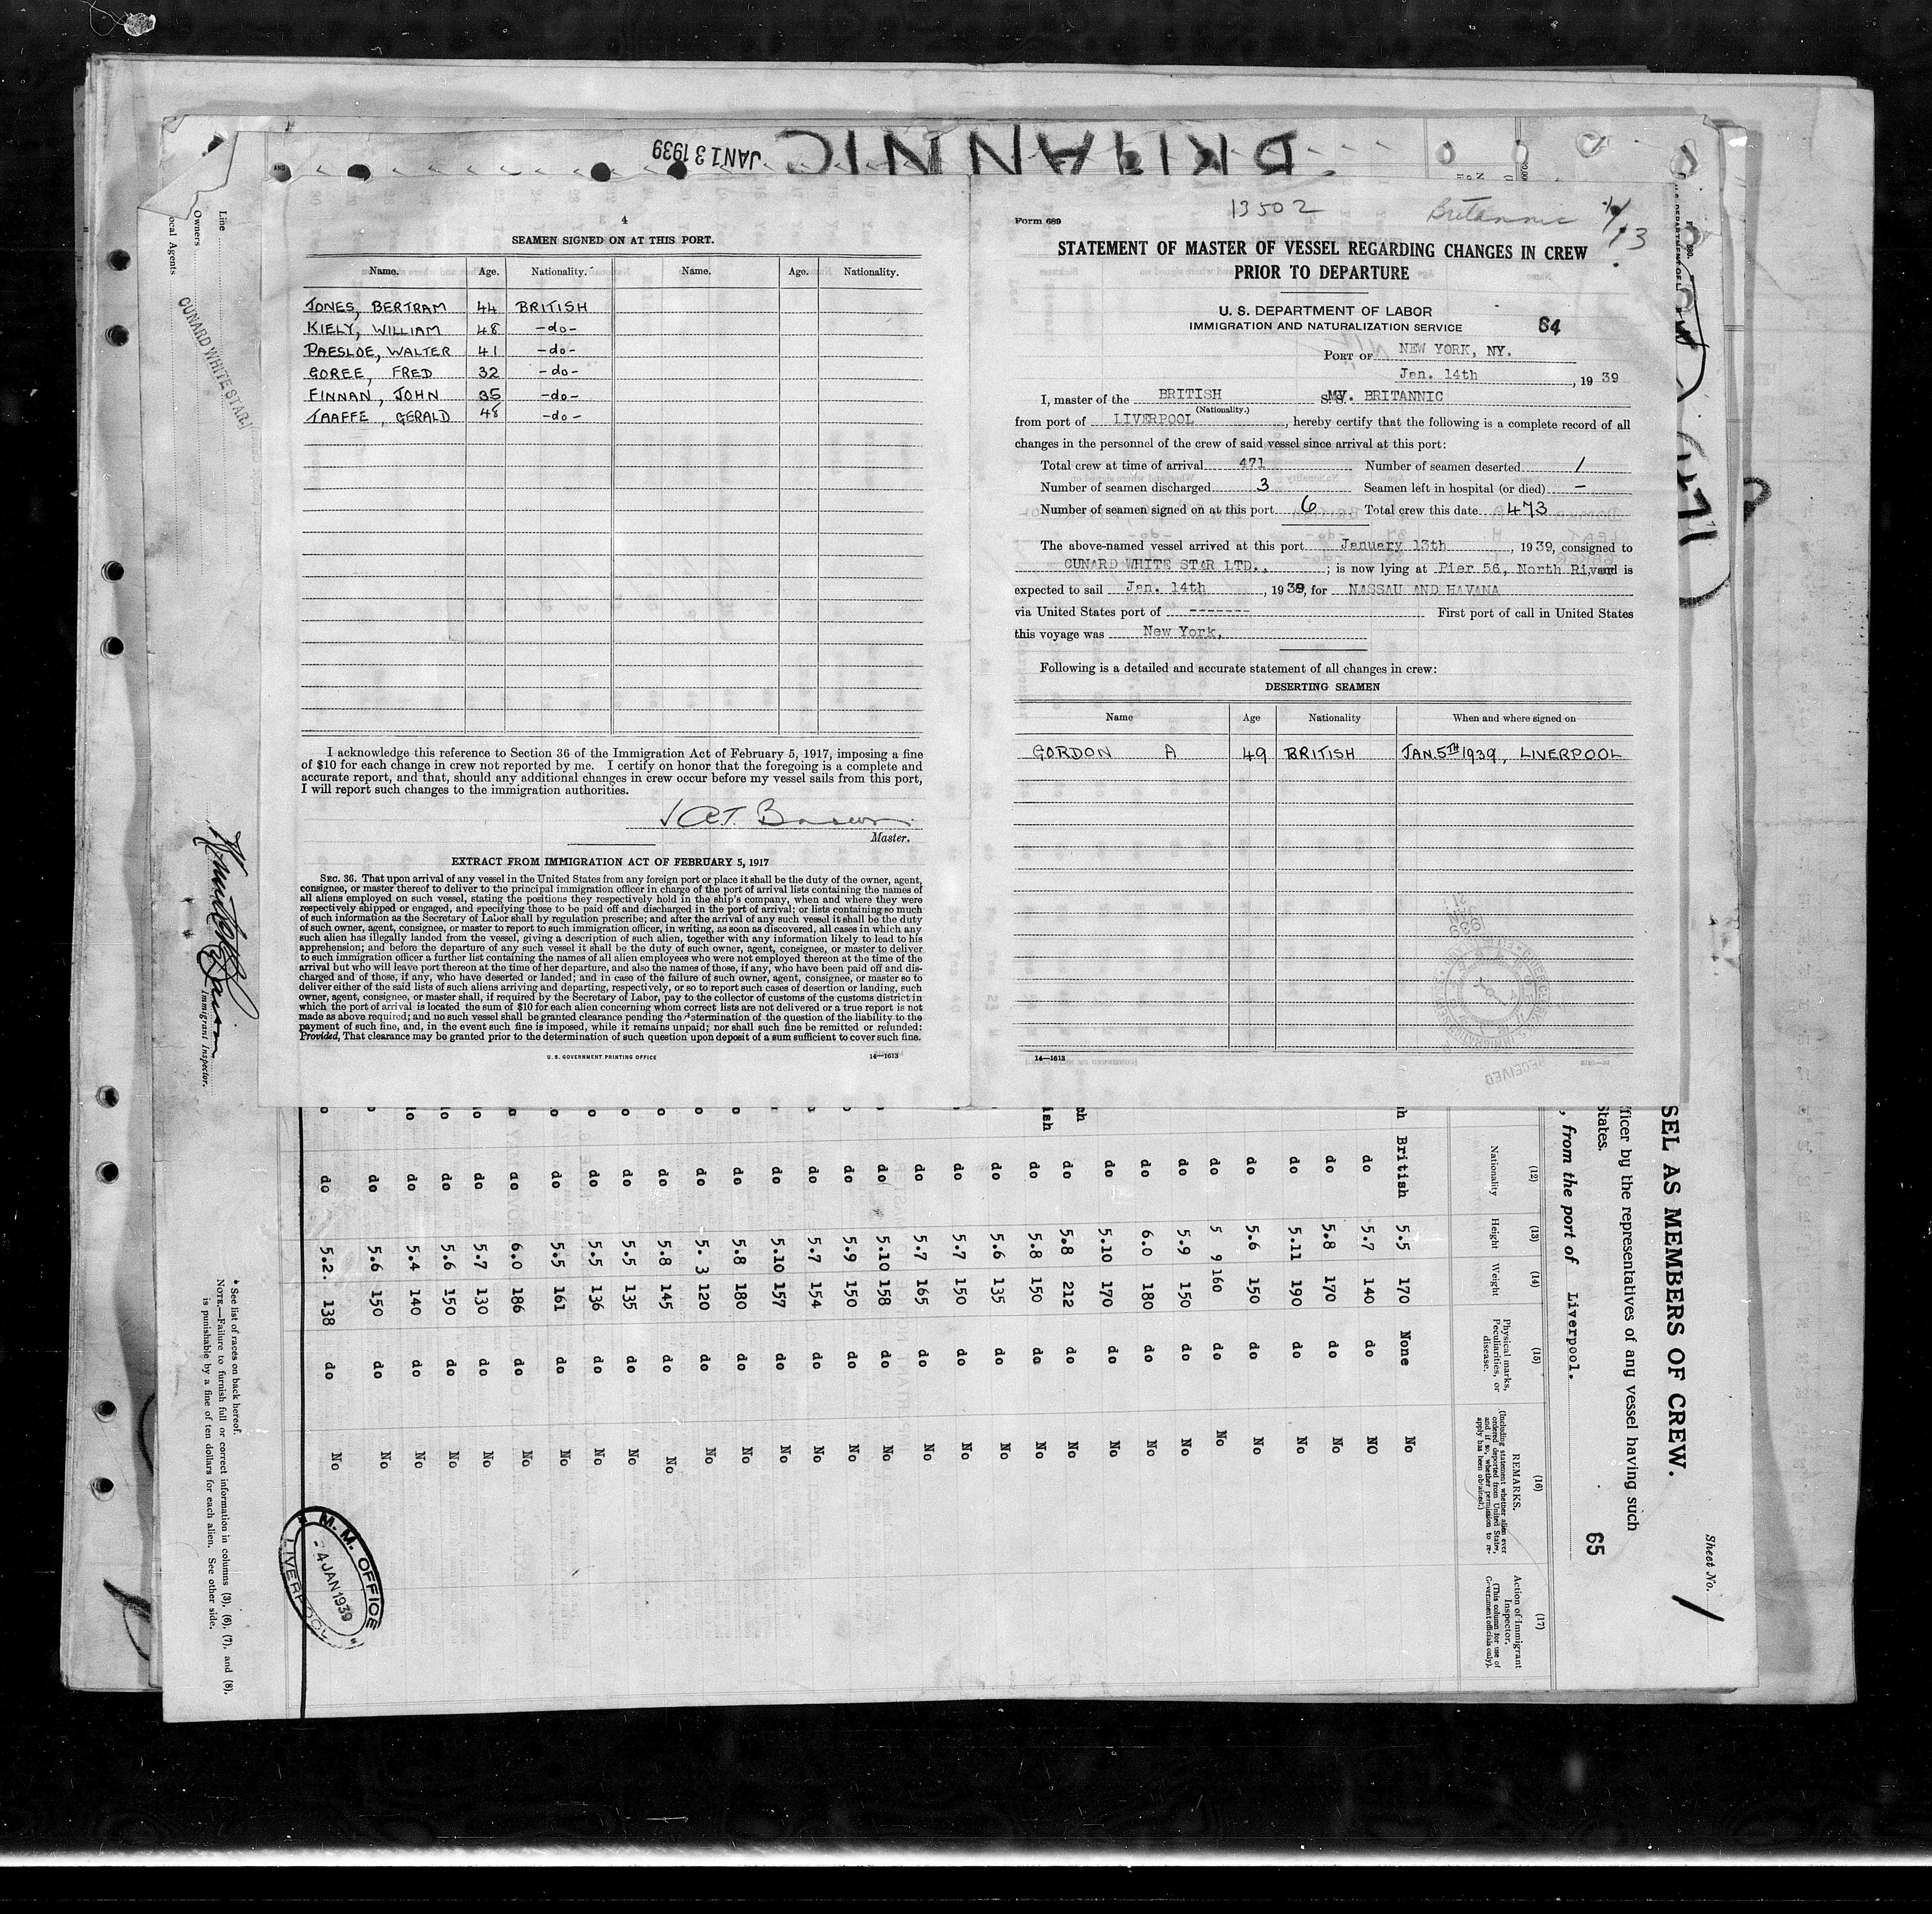 BRITANNIC
JAN 13 1939
4
SEAMEN SIGNED ON AT THIS PORT.
Name. Age. Nationality. Name. Age. Nationality.
JONES, BERTRAM 44 BRITISH
KIELY, WILLIAM 48 -do-
PAESLOE, WALTER 41 -do-
GOREE, FRED 32 -do-
FINNAN, JOHN 35 -do-
TAAFFE, GERALD 48 -do-
I acknowledge this reference to Section 36 of the Immigration Act of February 5, 1917, imposing a fine
of $10 for each change in crew not reported by me. I certify on honor that the foregoing is a complete and
accurate report, and that, should any additional changes in crew occur before my vessel sails from this port,
I will report such changes to the immigration authorities.
Master.
EXTRACT FROM IMMIGRATION ACT OF FEBRUARY 5, 1917
SEC. 36. That upon arrival of any vessel in the United States from any foreign port or place it shall be the duty of the owner, agent,
consignee, or master thereof to deliver to the principal immigration officer in charge of the port of arrival lists containing the names of
all aliens employed on such vessel, stating the positions they respectively hold in the ship's company, when and where they were
respectively shipped or engaged, and specifying those to be paid off and discharged in the port of arrival; or lists containing so much
of such information as the Secretary of Labor shall by regulation prescribe; and after the arrival of any such vessel it shall be the duty
of such owner, agent, consignee, or master to report to such immigration officer, in writing, as soon as discovered, all cases in which any
such alien has illegally landed from the vessel, giving a description of such alien, together with any information likely to lead to his
apprehension; and before the departure of any such vessel it shall be the duty of such owner, agent, consignee, or master to deliver
to such immigration officer a further list containing the names of all alien employees who were not employed thereon at the time of the
arrival but who will leave port thereon at the time of her departure, and also the names of those, if any, who have been paid off and dis-
charged and of those, if any, who have deserted or landed; and in case of the failure of such owner, agent, consignee, or master so to
deliver either of the said lists of such aliens arriving and departing, respectively, or so to report such cases of desertion or landing, such
owner, agent, consignee, or master shall, if required by the Secretary of Labor, pay to the collector of customs of the customs district in
which the port of arrival is located the sum of $10 for each alien concerning whom correct lists are not delivered or a true report is not
made as above required; and no such vessel shall be granted clearance pending the determination of the question of the liability to the
payment of such fine, and, in the event such fine is imposed, while it remains unpaid; nor shall such fine be remitted or refunded:
Provided, That clearance may be granted prior to the determination of such question upon deposit of a sum sufficient to cover such fine.
U. S. GOVERNMENT PRINTING OFFICE 14—1613
Form 689 13502 Britannic 1/13
STATEMENT OF MASTER OF VESSEL REGARDING CHANGES IN CREW
PRIOR TO DEPARTURE
U. S. DEPARTMENT OF LABOR
IMMIGRATION AND NATURALIZATION SERVICE 64
PORT OF NEW YORK, NY.
Jan. 14th, 1939
I, master of the BRITISH S.S. MV. BRITANNIC
(Nationality.)
from port of LIVERPOOL, hereby certify that the following is a complete record of all
changes in the personnel of the crew of said vessel since arrival at this port:
Total crew at time of arrival 471 Number of seamen deserted 1
Number of seamen discharged 3 Seamen left in hospital (or died) -
Number of seamen signed on at this port 6 Total crew this date 473
The above-named vessel arrived at this port January 13th, 1939, consigned to
CUNARD WHITE STAR LTD.,; is now lying at Pier 56, North River, and is
expected to sail Jan. 14th, 1939, for NASSAU AND HAVANA
via United States port of ------- First port of call in United States
this voyage was New York.
Following is a detailed and accurate statement of all changes in crew:
DESERTING SEAMEN
Name Age Nationality When and where signed on
GORDON A 49 BRITISH JAN. 5TH 1939, LIVERPOOL
14—1613
RECEIVED
Line
Owners
ocal Agents
CUNARD WHITE STAR
Immigrant Inspector.
* See list of races on back hereof.
NOTE.—Failure to furnish full or correct information in columns (3), (6), (7), and (8),
is punishable by a fine of ten dollars for each alien. See other side.
M. M. OFFICE
-4 JAN 1939
LIVERPOOL
Sheet No. 1
SEL AS MEMBERS OF CREW.
fficer by the representatives of any vessel having such
States. 65
, from the port of Liverpool.
(12) (13) (14) (15) (16) (17)
Nationality Height Weight Physical marks, Peculiarities, or disease. REMARKS. (Including statement whether alien ever ordered deported from United States, and if so, whether permission to re-apply has been obtained.) Action of Immigrant Inspector. (This column for use of Government officials only).
British 5.5 170 None No
do 5.7 140 do NO
do 5.8 170 do No
do 5.11 190 do No
do 5.6 150 do No
do 5 9 160 do No
do 5.9 150 do No
do 6.0 180 do No
do 5.10 170 do No
do 5.8 212 do No
do 5.8 150 do No
do 5.6 135 do No
do 5.7 150 do No
do 5.7 165 do No
do 5.10 158 do No
do 5.9 150 do No
do 5.7 154 do No
do 5.10 157 do No
do 5.8 180 do No
do 5.3 120 do No
do 5.8 145 do No
do 5.5 135 do No
do 5.5 136 do No
do 5.5 161 do No
do 6.0 186 do No
do 5.7 130 do No
do 5.6 150 do No
do 5.4 140 do No
do 5.6 150 do No
do 5.2. 138 do No